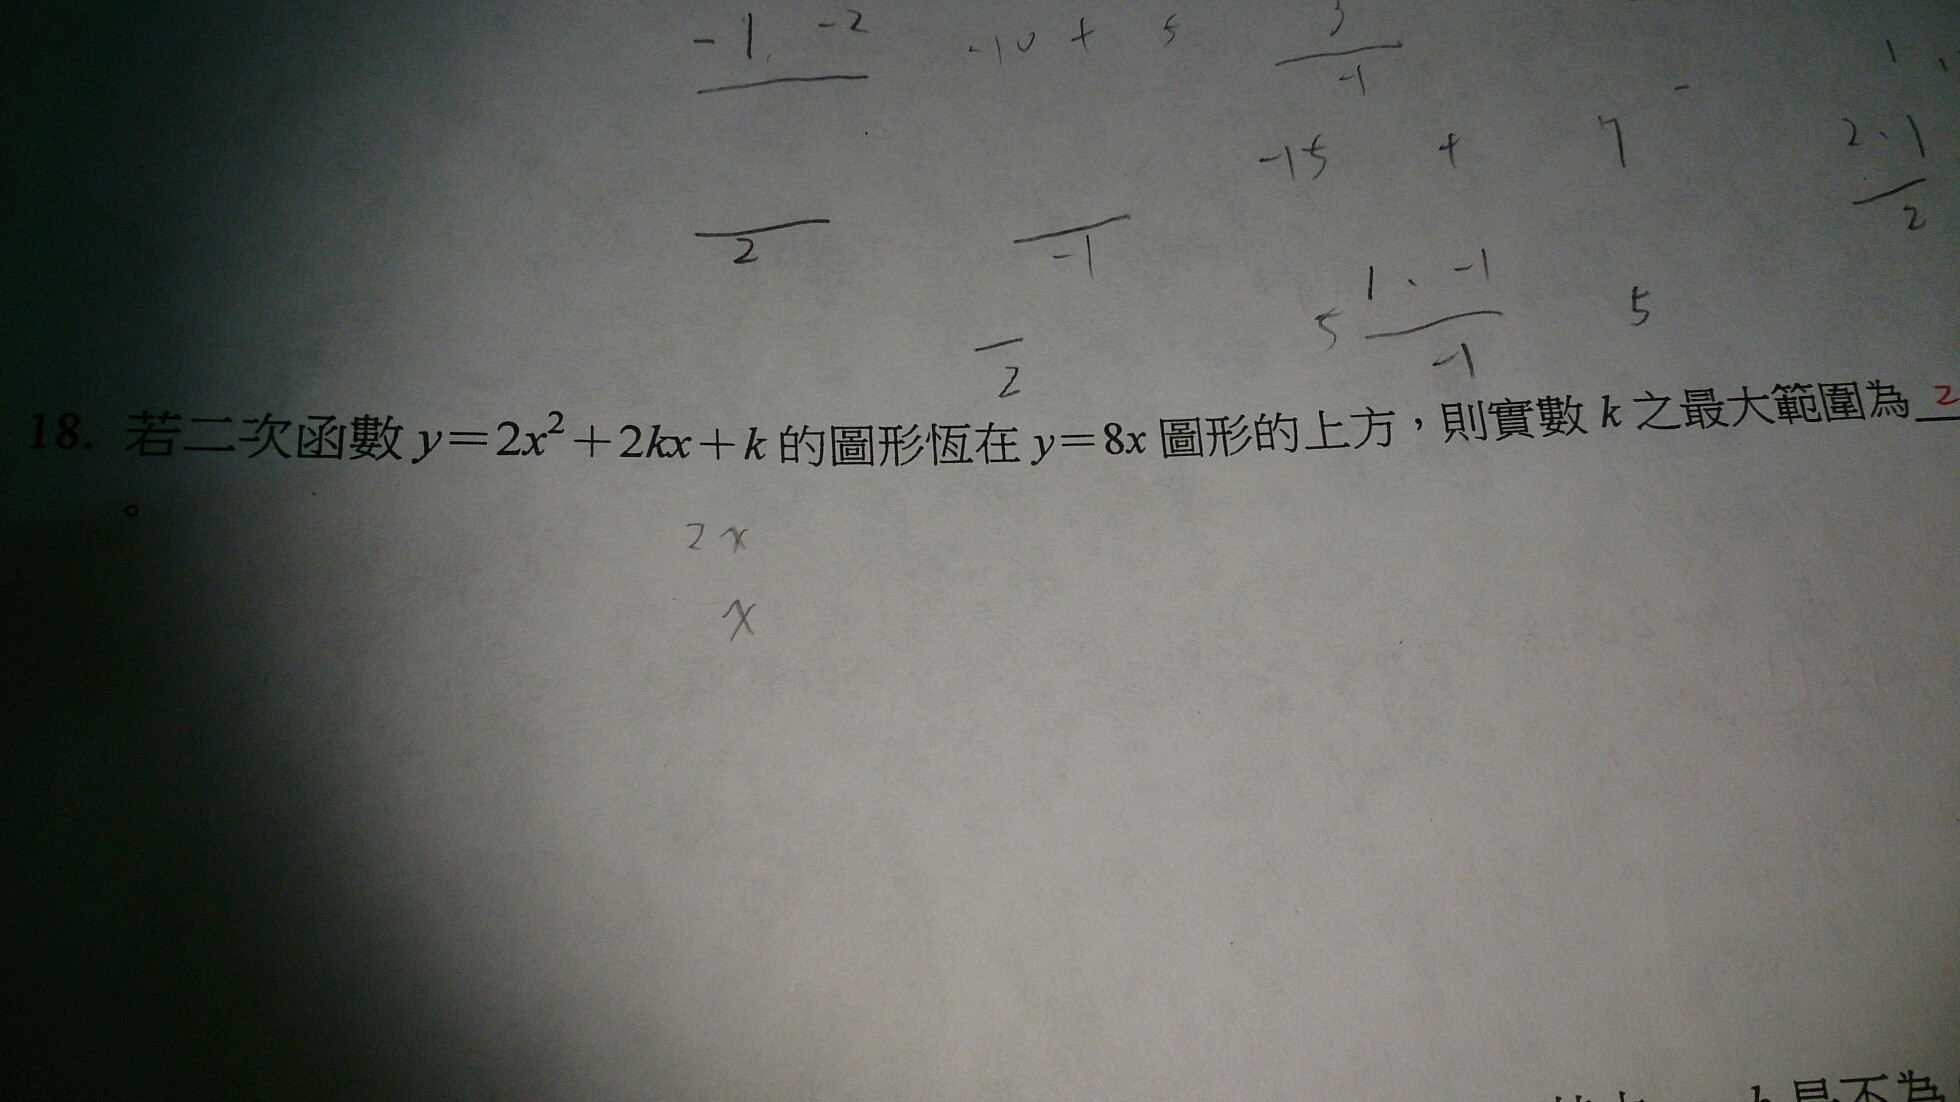 -1, -2 -10 + 5 3
-1
-15 + 7 2、1
2
2 -1
1、-1
5 5
-1
2
18. 若二次函數 y=2x²+2kx+k 的圖形恆在 y=8x 圖形的上方，則實數 k 之最大範圍為 2
。
2x
x
k 是不為